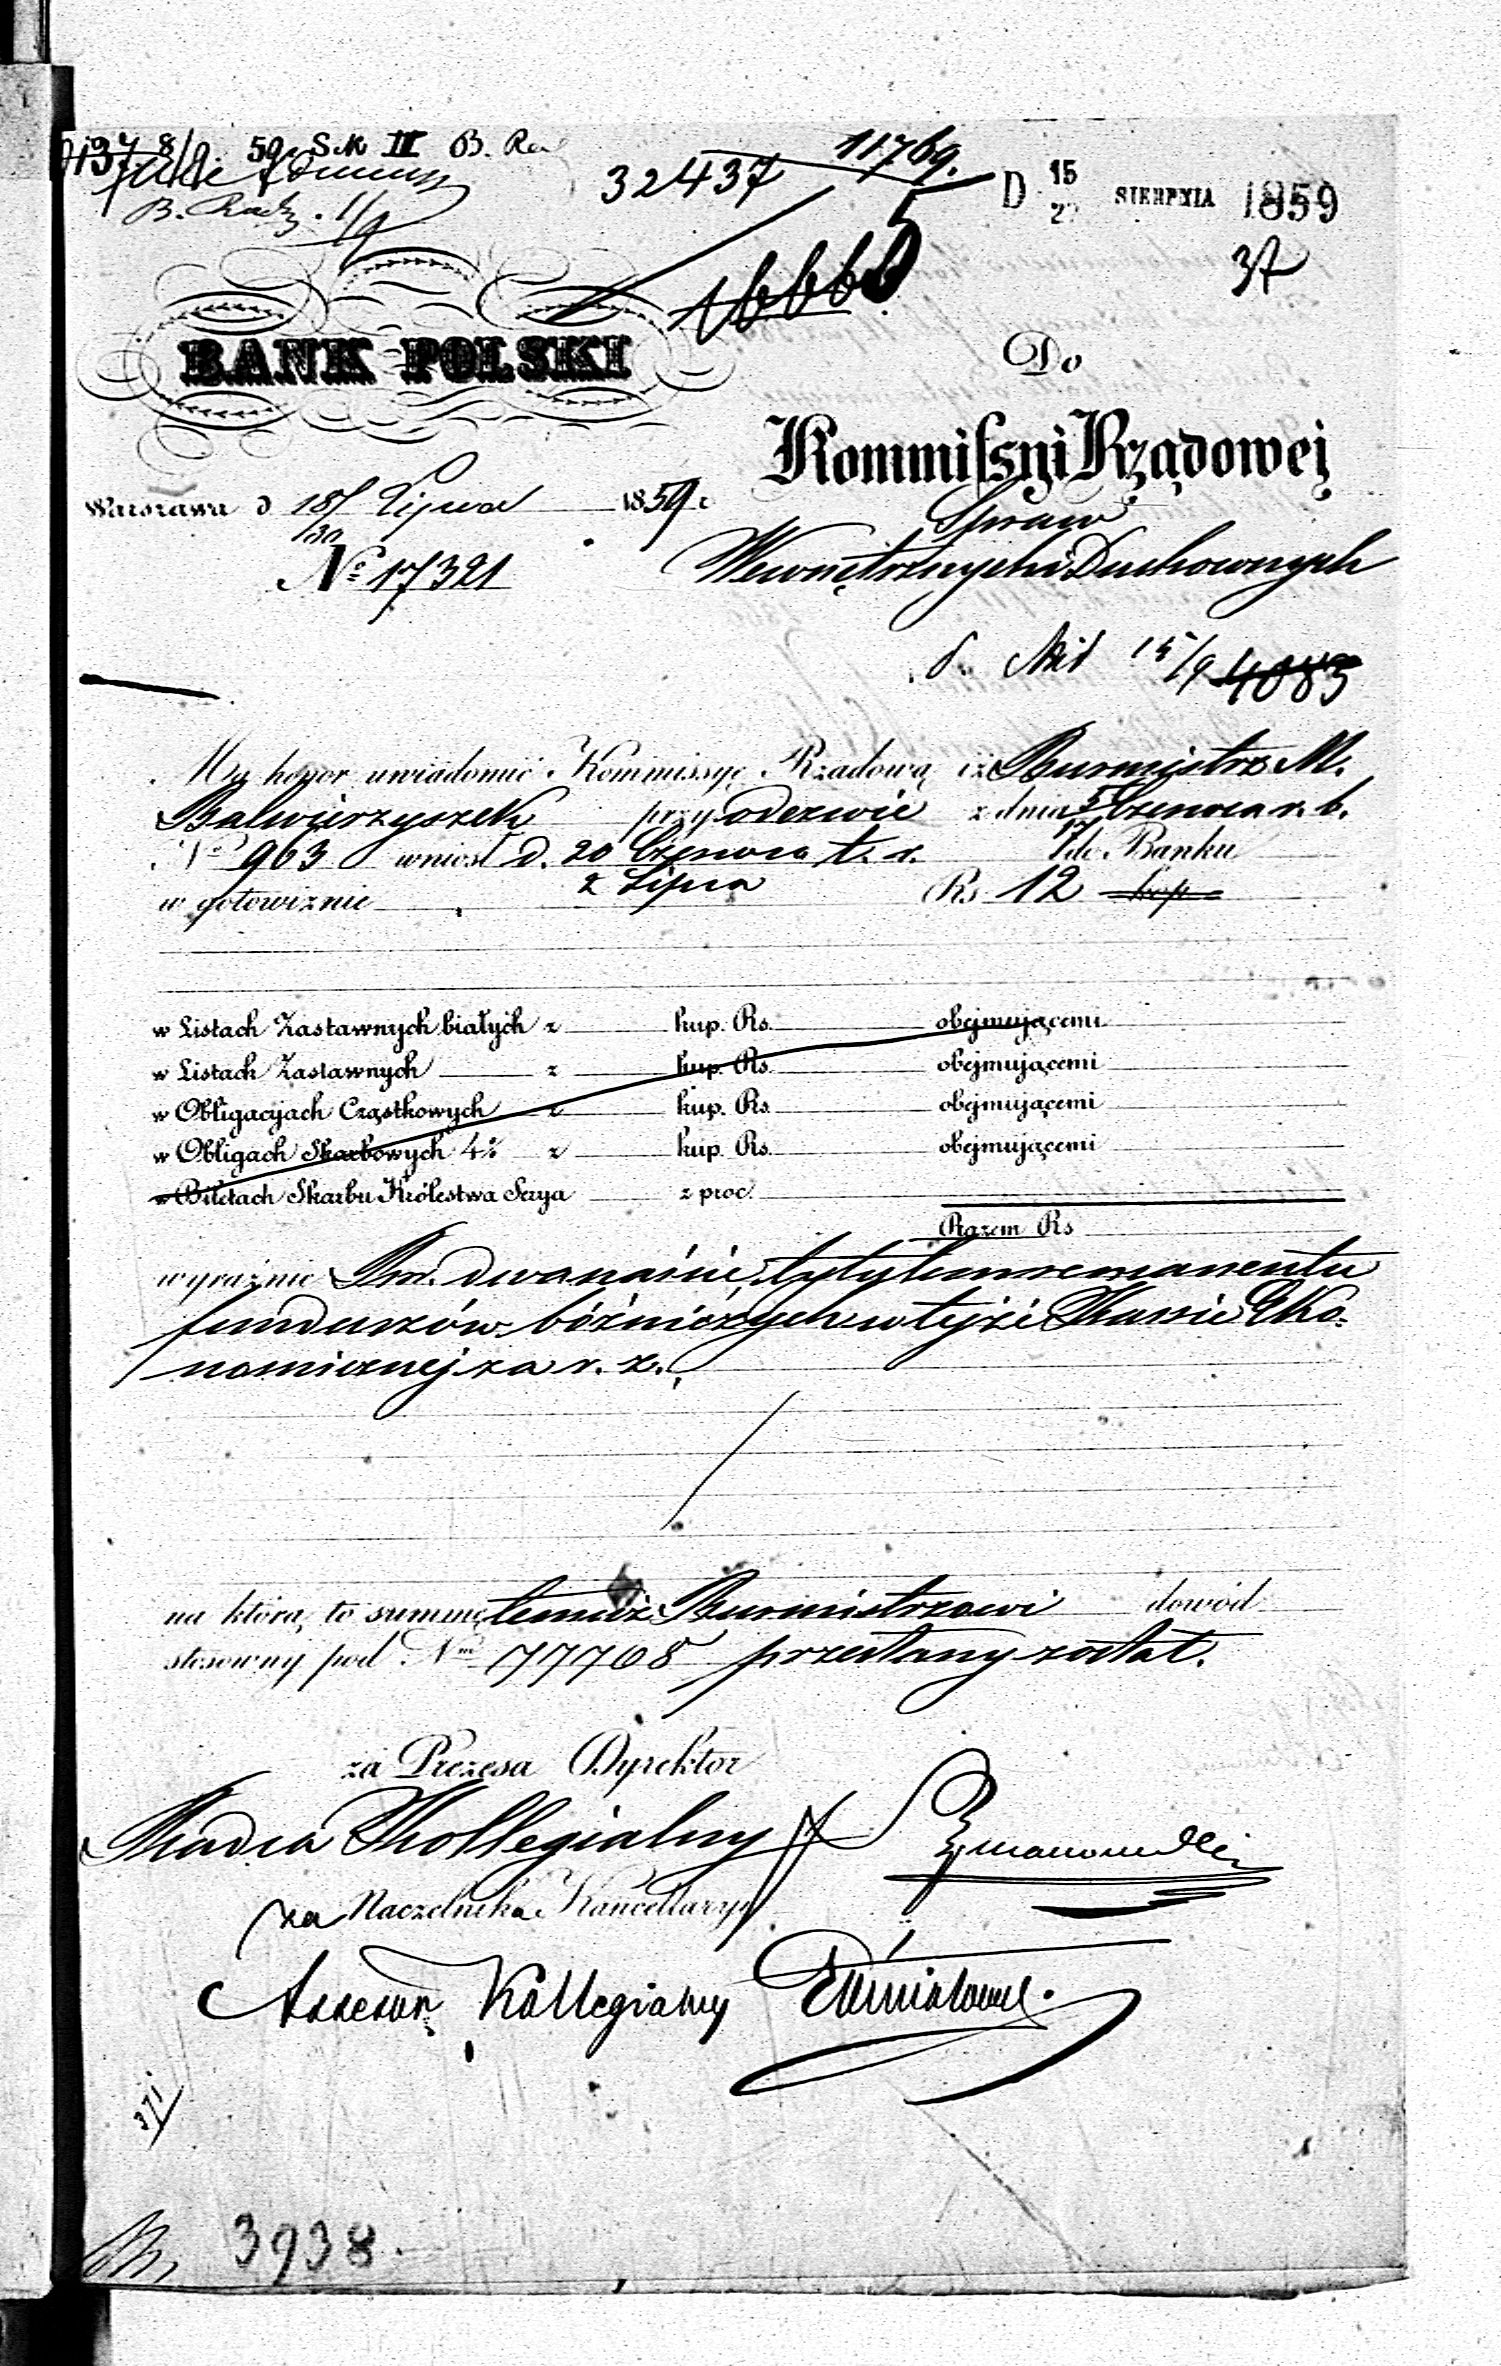 59 Sek II B.
32437
11769.
D 15 SIERPNIA 1859
B. Radz.
37
16665
BANK POLSKI
Do
Kommissyi Rządowej
Warszawa d 18/30 Lipca 1859 r.
Spraw
Wewnętrznych i Duchownych
No 17321
15/9 4083
Ma honor uwiadomić Kommissyę Rządową iż Burmistrz M.
Balwierzyszek przy odezwie z dnia 5/17 Czerwca r. b.
No 963 wniósł d. 20 Czerwca t. r. do Banku
2 Lipca
w gotowiznie Rs 12 kop
w Listach Zastawnych białych z kup. Rs. obejmującemi
w Listach Zastawnych z kup. Rs. obejmującemi
w Obligacyach Cząstkowych z kup. Rs. obejmującemi
w Obligach Skarbowych 4% z kup. Rs. obejmującemi
w Biletach Skarbu Królestwa Serya z proc.
Razem Rs
wyraźnie Rsr. dwanaście, tytułem remanentu
funduszów bóżniczych w tejże Kassie Eko-
nomicznej za r. z.
na którą to summę temuż Burmistrzowi dowód
stosowny pod Nrm 77768 przesłany został.
za Prezesa Dyrektor
Radca Kollegialny
za Naczelnika Kancellaryi
Assesor Kollegialny
371
3938.